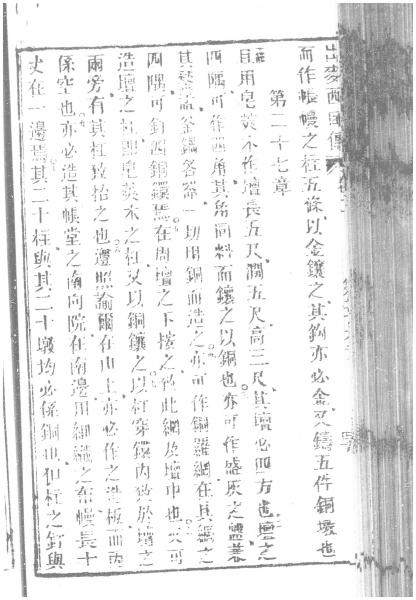 出麥西國傳
而作帳幔之柱五條以金鑲之其鈎亦必金又鑄五件銅墩也
第二十七章
且用皂莢木作壇長五尺濶五尺高三尺此壇必四方也壇之
四隅可作四角其角同料而鑲之以銅也亦可作盛灰之盬兼
其 盂釜鍋各器一切用銅而造之亦可作銅羅網在其網之
四隅可鈎四銅鐶焉在周壇之下搂之致此網及壇巾也又可
造壇之杠即皂莢木之杠又以銅鑲之以杠穿鐶內致於壇之
兩旁有其杠致抬之也遵照諭爾在山上亦必作之造板而內
係空也亦必造其帳堂之南向院在南邊用細織之布幔長十
丈在一邊焉其二十柱與其二十墩均必係銅也但柱之釘與